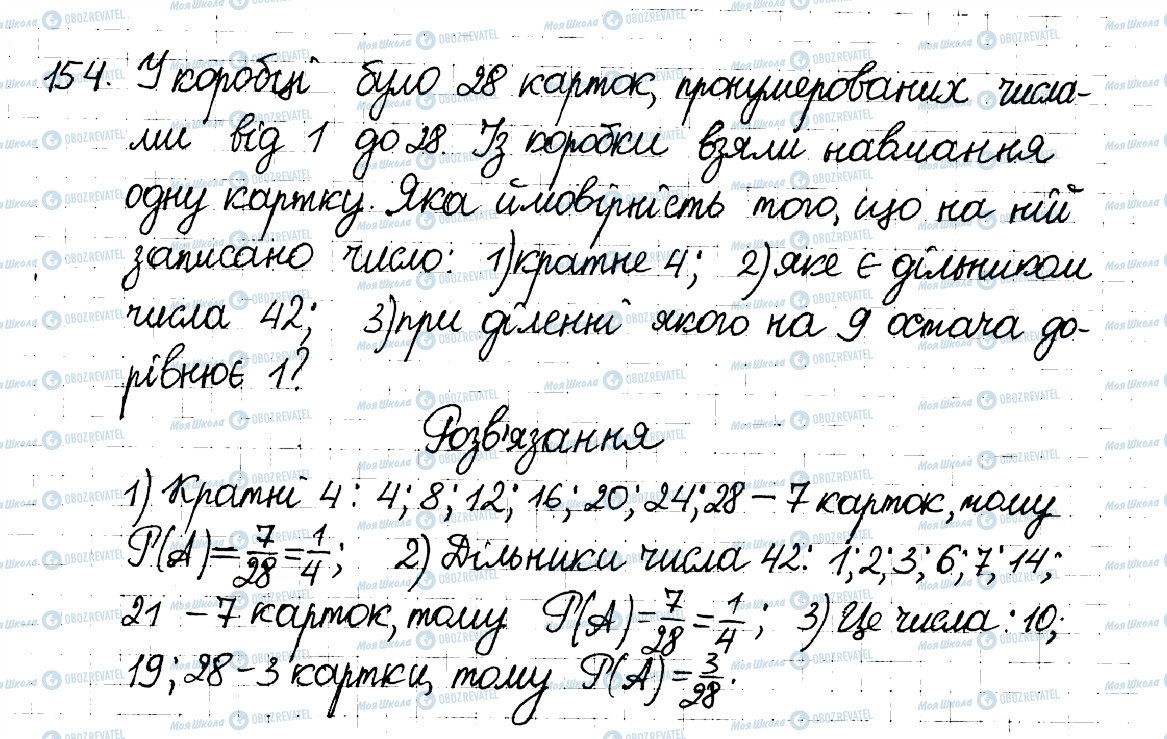 154. У коробці було 28 карток, пронумерованих числа-
ми від 1 до 28. Із коробки взяли навмання
одну картку. Яка ймовірність того, що на ній
записано число: 1) кратне 4; 2) яке є дільником
числа 42; 3) при діленні якого на 9 остача до-
рівнює 1?
Розв'язання
1) Кратні 4: 4; 8; 12; 16; 20; 24; 28 – 7 карток, тому
P(A)=7/28=1/4; 2) Дільники числа 42: 1; 2; 3; 6; 7; 14;
21 – 7 карток, тому P(A)=7/28=1/4; 3) Це числа: 10;
19; 28 – 3 картки, тому P(A)=3/28.
Моя Школа OBOZREVATEL